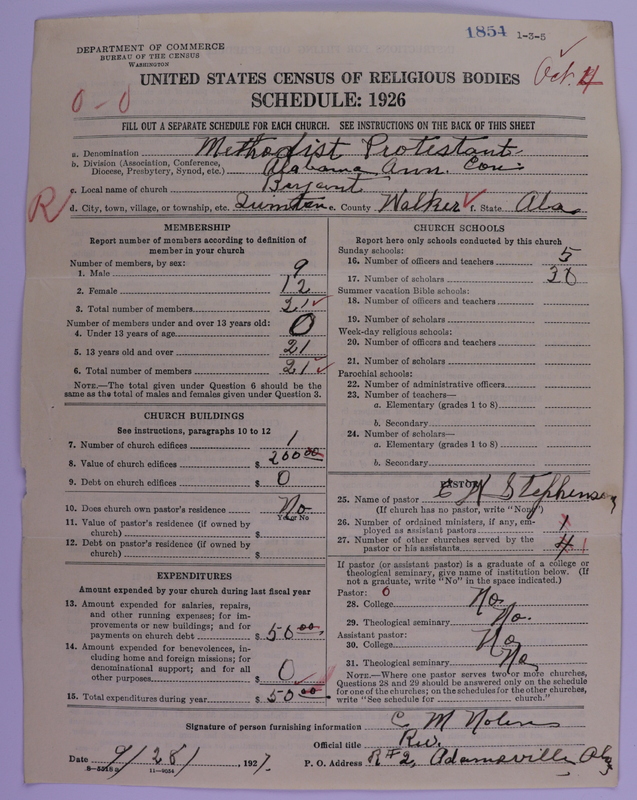 1854 1-3-5
DEPARTMENT OF COMMERCE
BUREAU OF THE CENSUS
WASHINGTON
Oct. 4
UNITED STATES CENSUS OF RELIGIOUS BODIES
0-0
SCHEDULE: 1926
FILL OUT A SEPARATE SCHEDULE FOR EACH CHURCH. SEE INSTRUCTIONS ON THE BACK OF THIS SHEET
a. Denomination Methodist Protestant
b. Division (Association, Conference, Diocese, Presbytery, Synod, etc.) Alabama Ann. Con
c. Local name of church
R
d. City, town, village, or township, etc. e. County Walker f. State Ala
MEMBERSHIP
Report number of members according to definition of
member in your church
Number of members, by sex:
1. Male 9
2. Female 12
3. Total number of members 21
Number of members under and over 13 years old:
4. Under 13 years of age 0
5. 13 years old and over 21
6. Total number of members 21
NOTE.—The total given under Question 6 should be
same as the total of males and females given under Question 3.
CHURCH BUILDINGS
See instructions, paragraphs 10 to 12
7. Number of church edifices 1
8. Value of church edifices $ 200 00
9. Debt on church edifices $ 0
10. Does church own pastor's residence No
Yes or No
11. Value of pastor's residence (if owned by
church) $
12. Debt on pastor's residence (if owned by
church) $
EXPENDITURES
Amount expended by your church during last fiscal year
13. Amount expended for salaries, repairs,
and other running expenses; for im-
provements or new buildings; and for
payments on church debt $ 50 00
14. Amount expended for benevolences, in-
cluding home and foreign missions; for
denominational support; and for all
other purposes $ 0
15. Total expenditures during year $ 50 00
CHURCH SCHOOLS
Report here only schools conducted by this church
Sunday schools:
16. Number of officers and teachers 5
17. Number of scholars
Summer vacation Bible schools:
18. Number of officers and teachers
19. Number of scholars
Week-day religious schools:
20. Number of officers and teachers
21. Number of scholars
Parochial schools:
22. Number of administrative officers
23. Number of teachers—
a. Elementary (grades 1 to 8)
b. Secondary
24. Number of scholars—
a. Elementary (grades 1 to 8)
b. Secondary
PASTOR
25. Name of pastor Stephenson
(If church has no pastor, write "None")
26. Number of ordained ministers, if any, em-
ployed as assistant pastors
27. Number of other churches served by the
pastor or his assistants 4
If pastor (or assistant pastor) is a graduate of a college or
theological seminary, give name of institution below. (If
not a graduate, write "No" in the space indicated.)
Pastor: 0
28. College No.
29. Theological seminary No.
Assistant pastor:
30. College No
31. Theological seminary No
NOTE.—Where one pastor serves two or more churches,
Questions 28 and 29 should be answered only on the schedule
for one of the churches; on the schedules for the other churches,
write "See schedule for church."
Signature of person furnishing information C M Nolen
Official title Rev.
Date 9/28/, 1927. P. O. Address R#2, Adamsville, Ala
8-5518a 11-9034